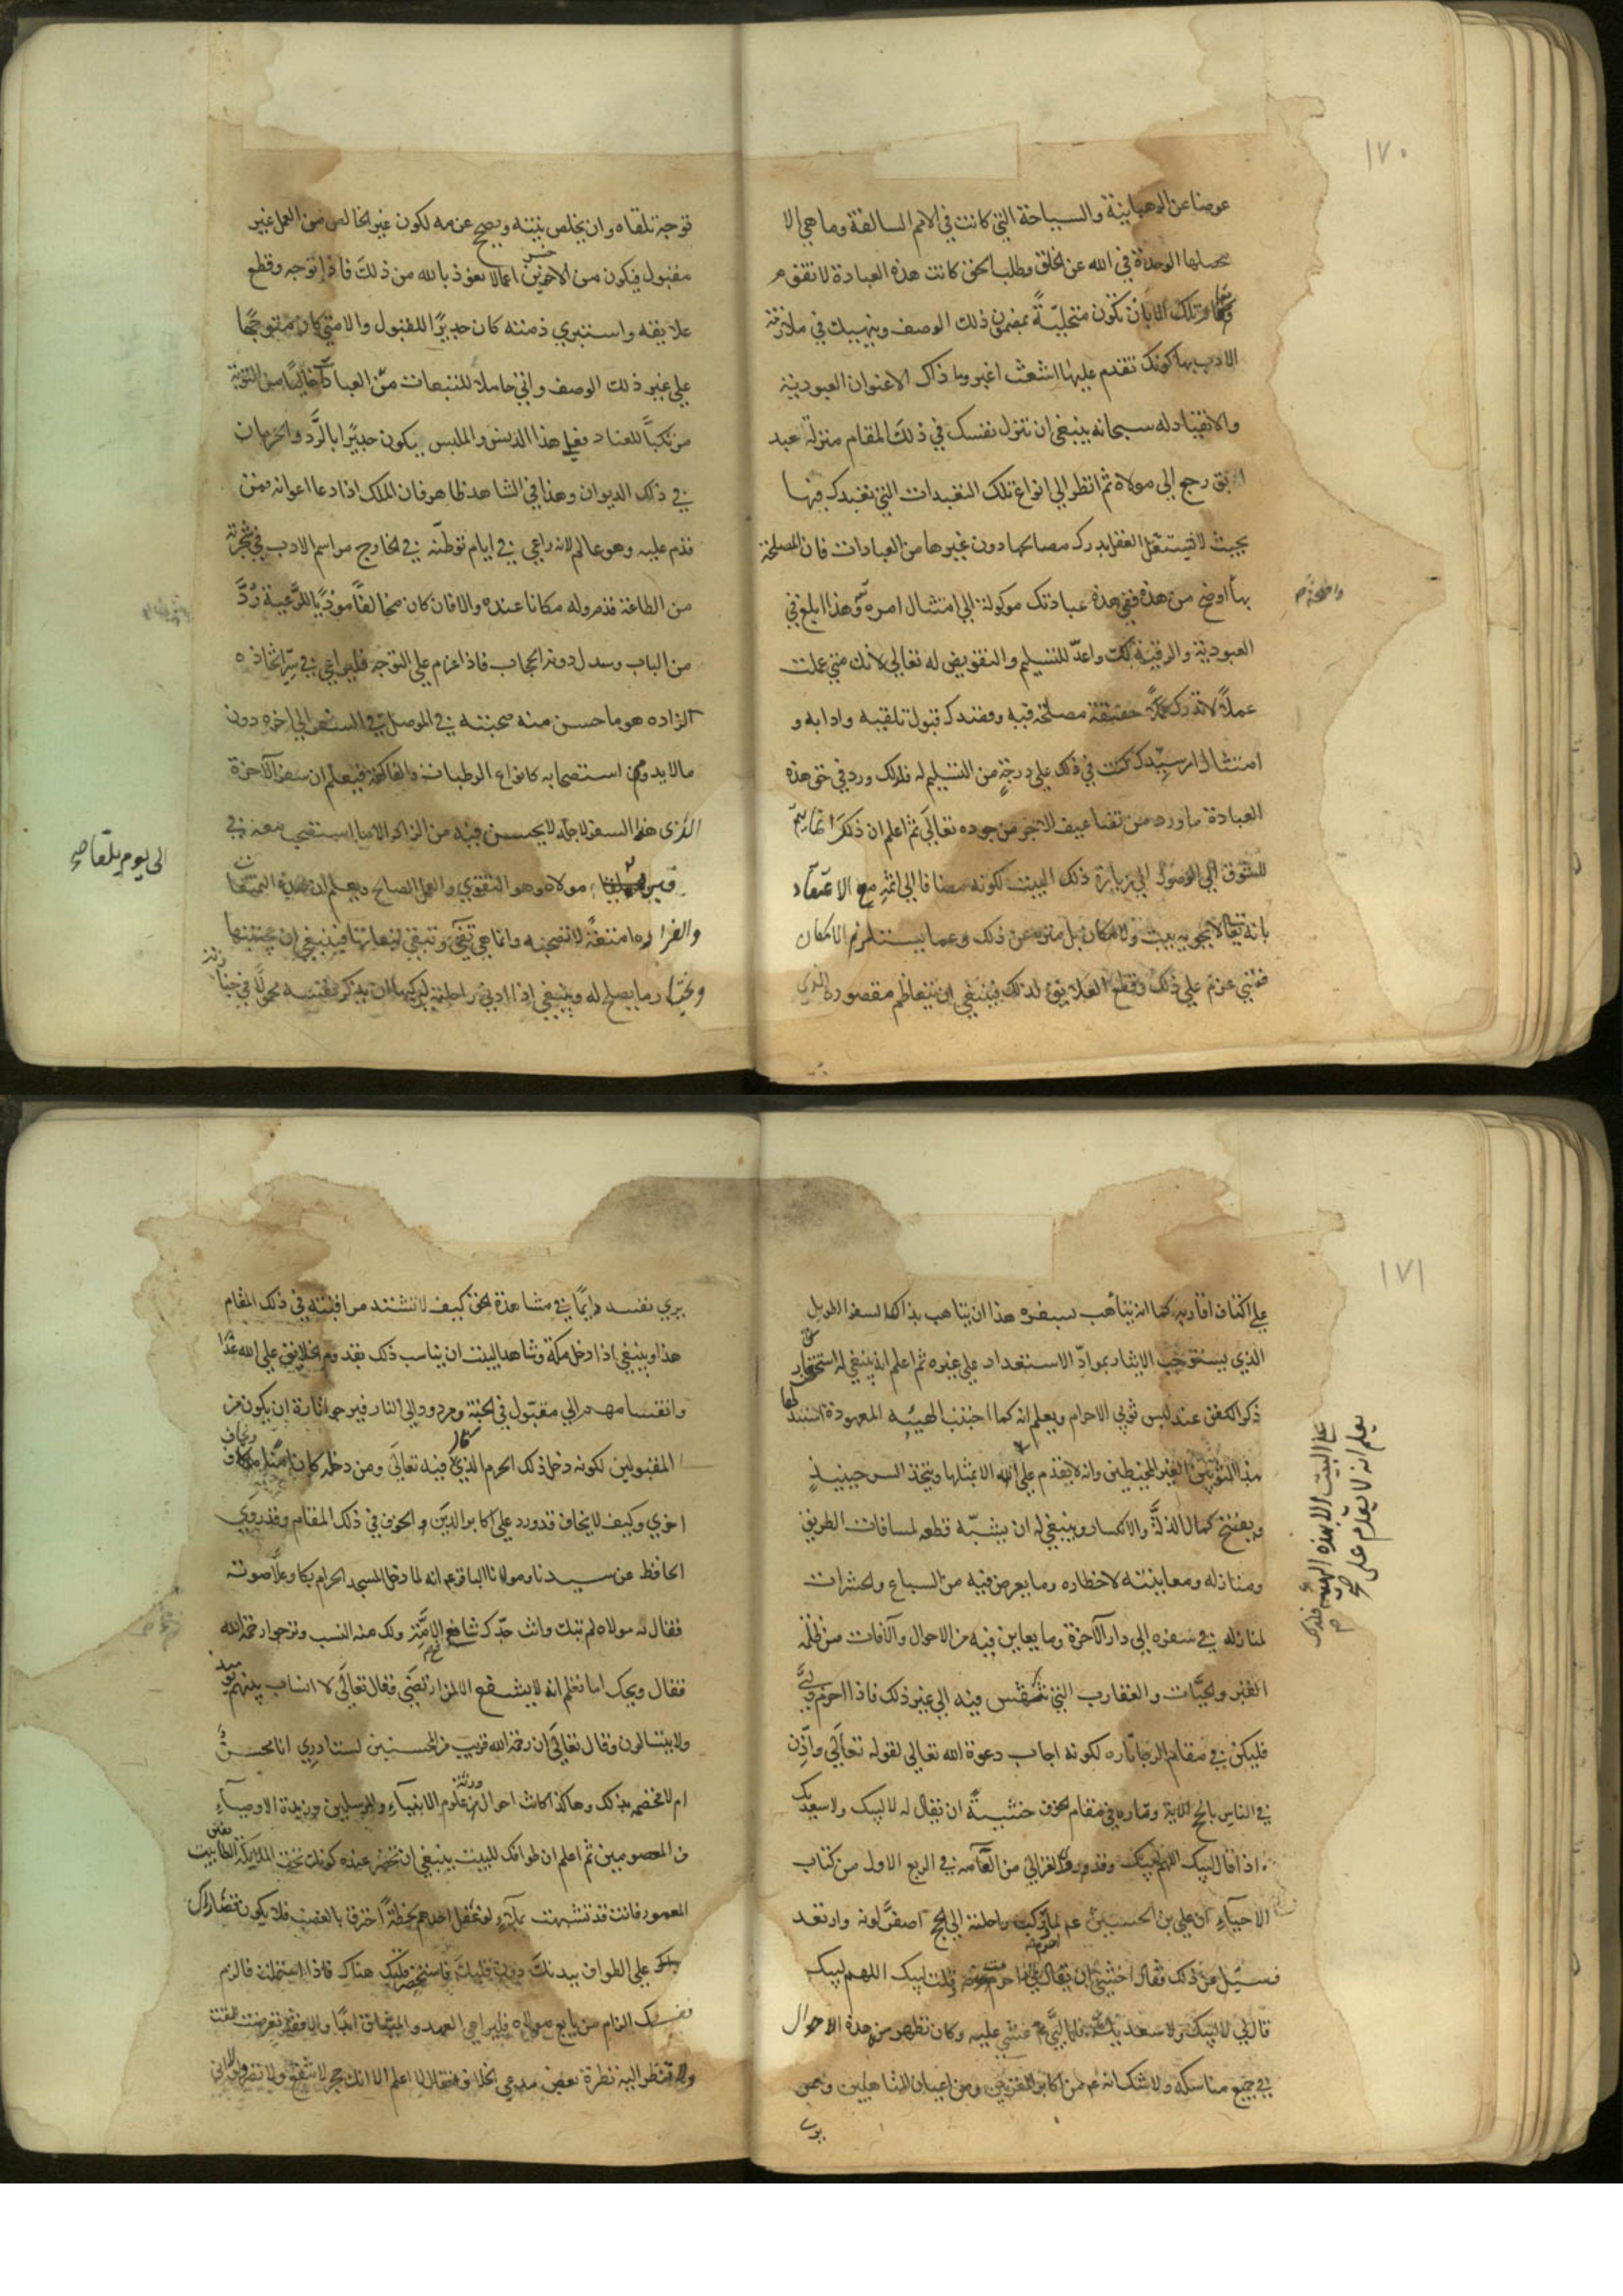 ١٧٠
عوضا عن الرهبانية والسياحة التي كانت في الامم السالفة وما هي الا
محصلها الوحدة في الله عن الخلق وطلب الحق كانت هذه العبادة لا تقوم
مقام تلك الا بان تكون متحلية بمضمون ذلك الوصف وينبهك في ملازمة
الادب بها كونك تقدم عليها اشعث اغبر وما ذاك الا عنوان العبودية
والانقياد له سبحانه ينبغي ان تنزل نفسك في ذلك المقام منزلة عبد
ابق رجع الى مولاه ثم انظر الى انواع تلك التعبدات التي تعبدك فيها
بحيث لا يستقل العقل بدرك مصالحها دون غيرها من العبادات فان المصلحة
بها اوضح من هذه ففي هذه عبادتك موكولة الى امتثال امره وهذا ابلغ في
واضحة
العبودية والرقية لك واعد للتسليم والتفويض له تعالى لانك متى عملت
عملا لا تدرك حقيقة مصلحته فيه وقصدك قبول تلقيه وادابه و
امتثال امر سيدك كنت في ذلك على درجة من التسليم له فلذلك ورد في حق هذه
العبادة ما ورد من تضاعيف الاجر من جوده تعالى ثم اعلم ان ذلك انما يتم
للشوق الى الوصول الى زيارة ذلك البيت لكونه مضافا الى الله مع الاعتقاد
بانه تعالى لا يحويه بيت ولا مكان بل منزه عن ذلك وعما يستلزم الامكان
فمتى عزم على ذلك وقطع العلايق لذلك فينبغي ان يتعاظم مقصوده الذي
توجه تلقاه وان يخلص نيته ويصح عزمه لكون غير الخالص من العمل غير
مقبول فيكون من الاخسرين اعمالا نعوذ بالله من ذلك فاذا توجه وقطع
علايقه واستبري ذمته كان جديرا للقبول والا متى كان متوجها
على غير ذلك الوصف واتى حاملا للتبعات من العباد خاليا من التوبة
مرتكبا للعناد فعلى هذا الدنس والملبس يكون جديرا بالرد والحرمان
في ذلك الديوان وهذا في الشاهد ظاهر فان الملك اذا دعا اعوانه فمن
قدم عليه وهو عالم لانه راعي في ايام توطنه في الخارج مراسم الادب في
من الطاعة قدم وله مكانا عنده والا فان كان مخالفا موذيا للرعية رد
من الباب وسدل دونه الحجاب فاذا عزم على التوجه فليراعي في اتخاذه
الزاد هو ما حسن منه صحبته في الموصل في السفر الى اخره دون
ما لا يدوم استصحابه كانواع الرطبات والفاكهة فيعلم ان سفر الآخرة
الذي هذا السفر لاجله لا يحسن فيه من الزاد الا ما استصحب معه في
الى يوم يلقاه
مولاه وهو التقوى والعمل الصالح ويعلم ان هذه التمتعات
والغرارة امتعة لا تصحبه وانما هي تفنى وتبقى تبعاتها فينبغي ان يجتنبها
ويختار ما يصلح له وينبغي اذا ادنى راحلته ليركبها ان يذكر نفسه محمولا في جنازته
١٧١
على اكتاف اقاربه كما انه يتأهب لسفره هذا ان يتأهب بذاك السفر الطويل
الذي يستوجب الايثار بمواد الاستعداد على غيره ثم اعلم انه ينبغي له استحضار
ذكر الكفن عند لبس ثوبي الاحرام ويعلم انه كما اجتنب الهيئه المعهودة
بهذا الثوبين الغير المخيطين وانه لا يقدم على الله الا بمثلها ويتخذ السر حينيذ
يعلم انه لا يقدم على
على البيت الا بهذه الهيئة
ويفتح كمال الذلة والانكسار وينبغي له ان يشبه قطعه لمسافات الطريق
ومنازله ومعاينته لاخطاره وما يعرض فيه من السباع والحشرات
لمنازله في سفره الى دار الآخرة وما يعاين فيه من الاهوال والآفات من ظلمة
القبر والحيات والعقارب التي تنهش فيه الى غير ذلك فاذا احرم ولبى
فليكن في مقام الرجا تارة لكونه اجاب دعوة الله تعالى لقوله تعالى واذن
في الناس بالحج الآية وتارة في مقام الخوف خشية ان يقال له لا لبيك ولا سعديك
اذا قال لبيك اللهم لبيك وقد روى الغزالي من العامه في الربع الاول من كتاب
الاحياء ان علي بن الحسين عم لما ركب راحلته الى الحج اصفر لونه وارتعد
فسيل عن ذلك فقال اخشى ان يقال قلت لبيك اللهم لبيك
قال لي لا لبيك ولا سعديك فلما لبى غشي عليه وكان تظهر منه هذه الاحوال
في جميع مناسكه ولا شك انه عم من اكابر المقربين ومن اعيان المتاهلين وممن
يرى
يرى نفسه دايما في مشاهدة الحق كيف لا تشتد مراقبته في ذلك المقام
هذا وينبغي اذا دخل مكة وشاهد البيت ان يناسب ذلك بقدوم الخلايق على الله غدا
وانقسامهم الى مقبول في الجنة ومردود الى النار فيرجو تارة ان يكون من
المقبولين لكونه دخل ذلك الحرم الذي قال فيه تعالى ومن دخله كان امنا ويخاف
اخرى وكيف لا يخاف قد ورد على اكابر الدين والخوف في ذلك المقام وقد روى
الحافظ عن سيدنا ومولانا الباقر عم انه لما دخل المسجد الحرام بكا وعلا صوته
فقال له مولاه لم تبك وانت جدك شافع الامة ولك منه النسب وترجوا رحمة الله
فقال ويحك اما تعلم انه لا يشفع الا لمن ارتضى فقال تعالى لا انساب بينهم يوميذ
ولا يتسالون وقال تعالى ان رحمة الله قريب من المحسنين لست ادري انا محسن
ام لا فخصمه بذلك وهاكذا كانت احوال من ورثته علوم الانبياء والمرسلين وزبدة الاوصياء
من المعصومين ثم اعلم ان طوافك للبيت ينبغي ان تحضر عنده كونك تحف الملايكة الطائفين بالبيت
المعمور فانت قد تشبهت بملائكة لو غفل احدهم لحظة احترق بالغضب فلا يكون قصاراك
على الطواف ببدنك دون قلبك فاستحضر قلبك هناك فاذا استلمت فالزم
نفسك الزام من بايع مولاه فليراعي العهد والميثاق ابدا والا فقد تعرضت للمقت
ولا تنظر اليه نظرة بعض مدعي الخلافة فقال لا اعلم الا انك حجر لا تنفع ولا تضر